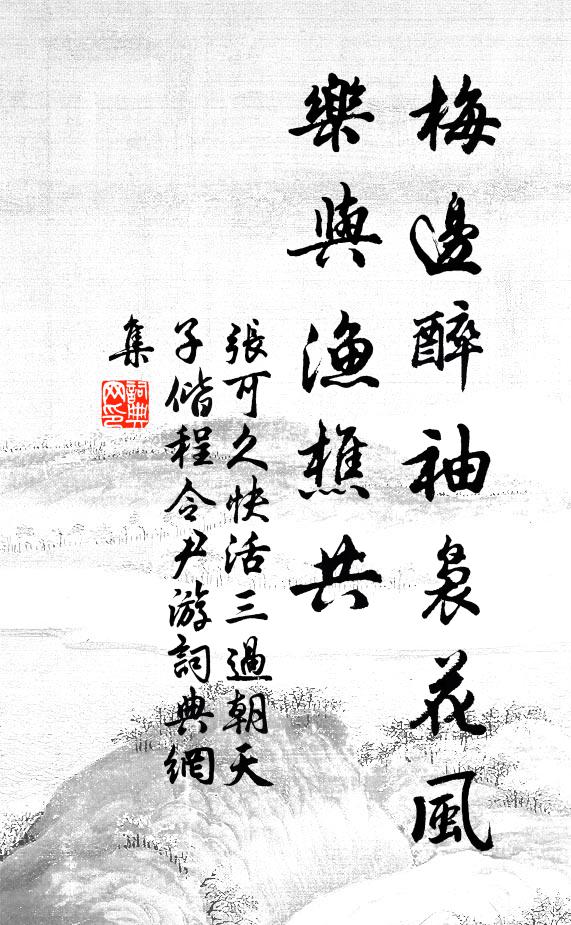 梅邊醉袖裊花風
樂與漁樵共
張可久快活三過朝天
子偕程令尹游詞典網
集
詞典網印